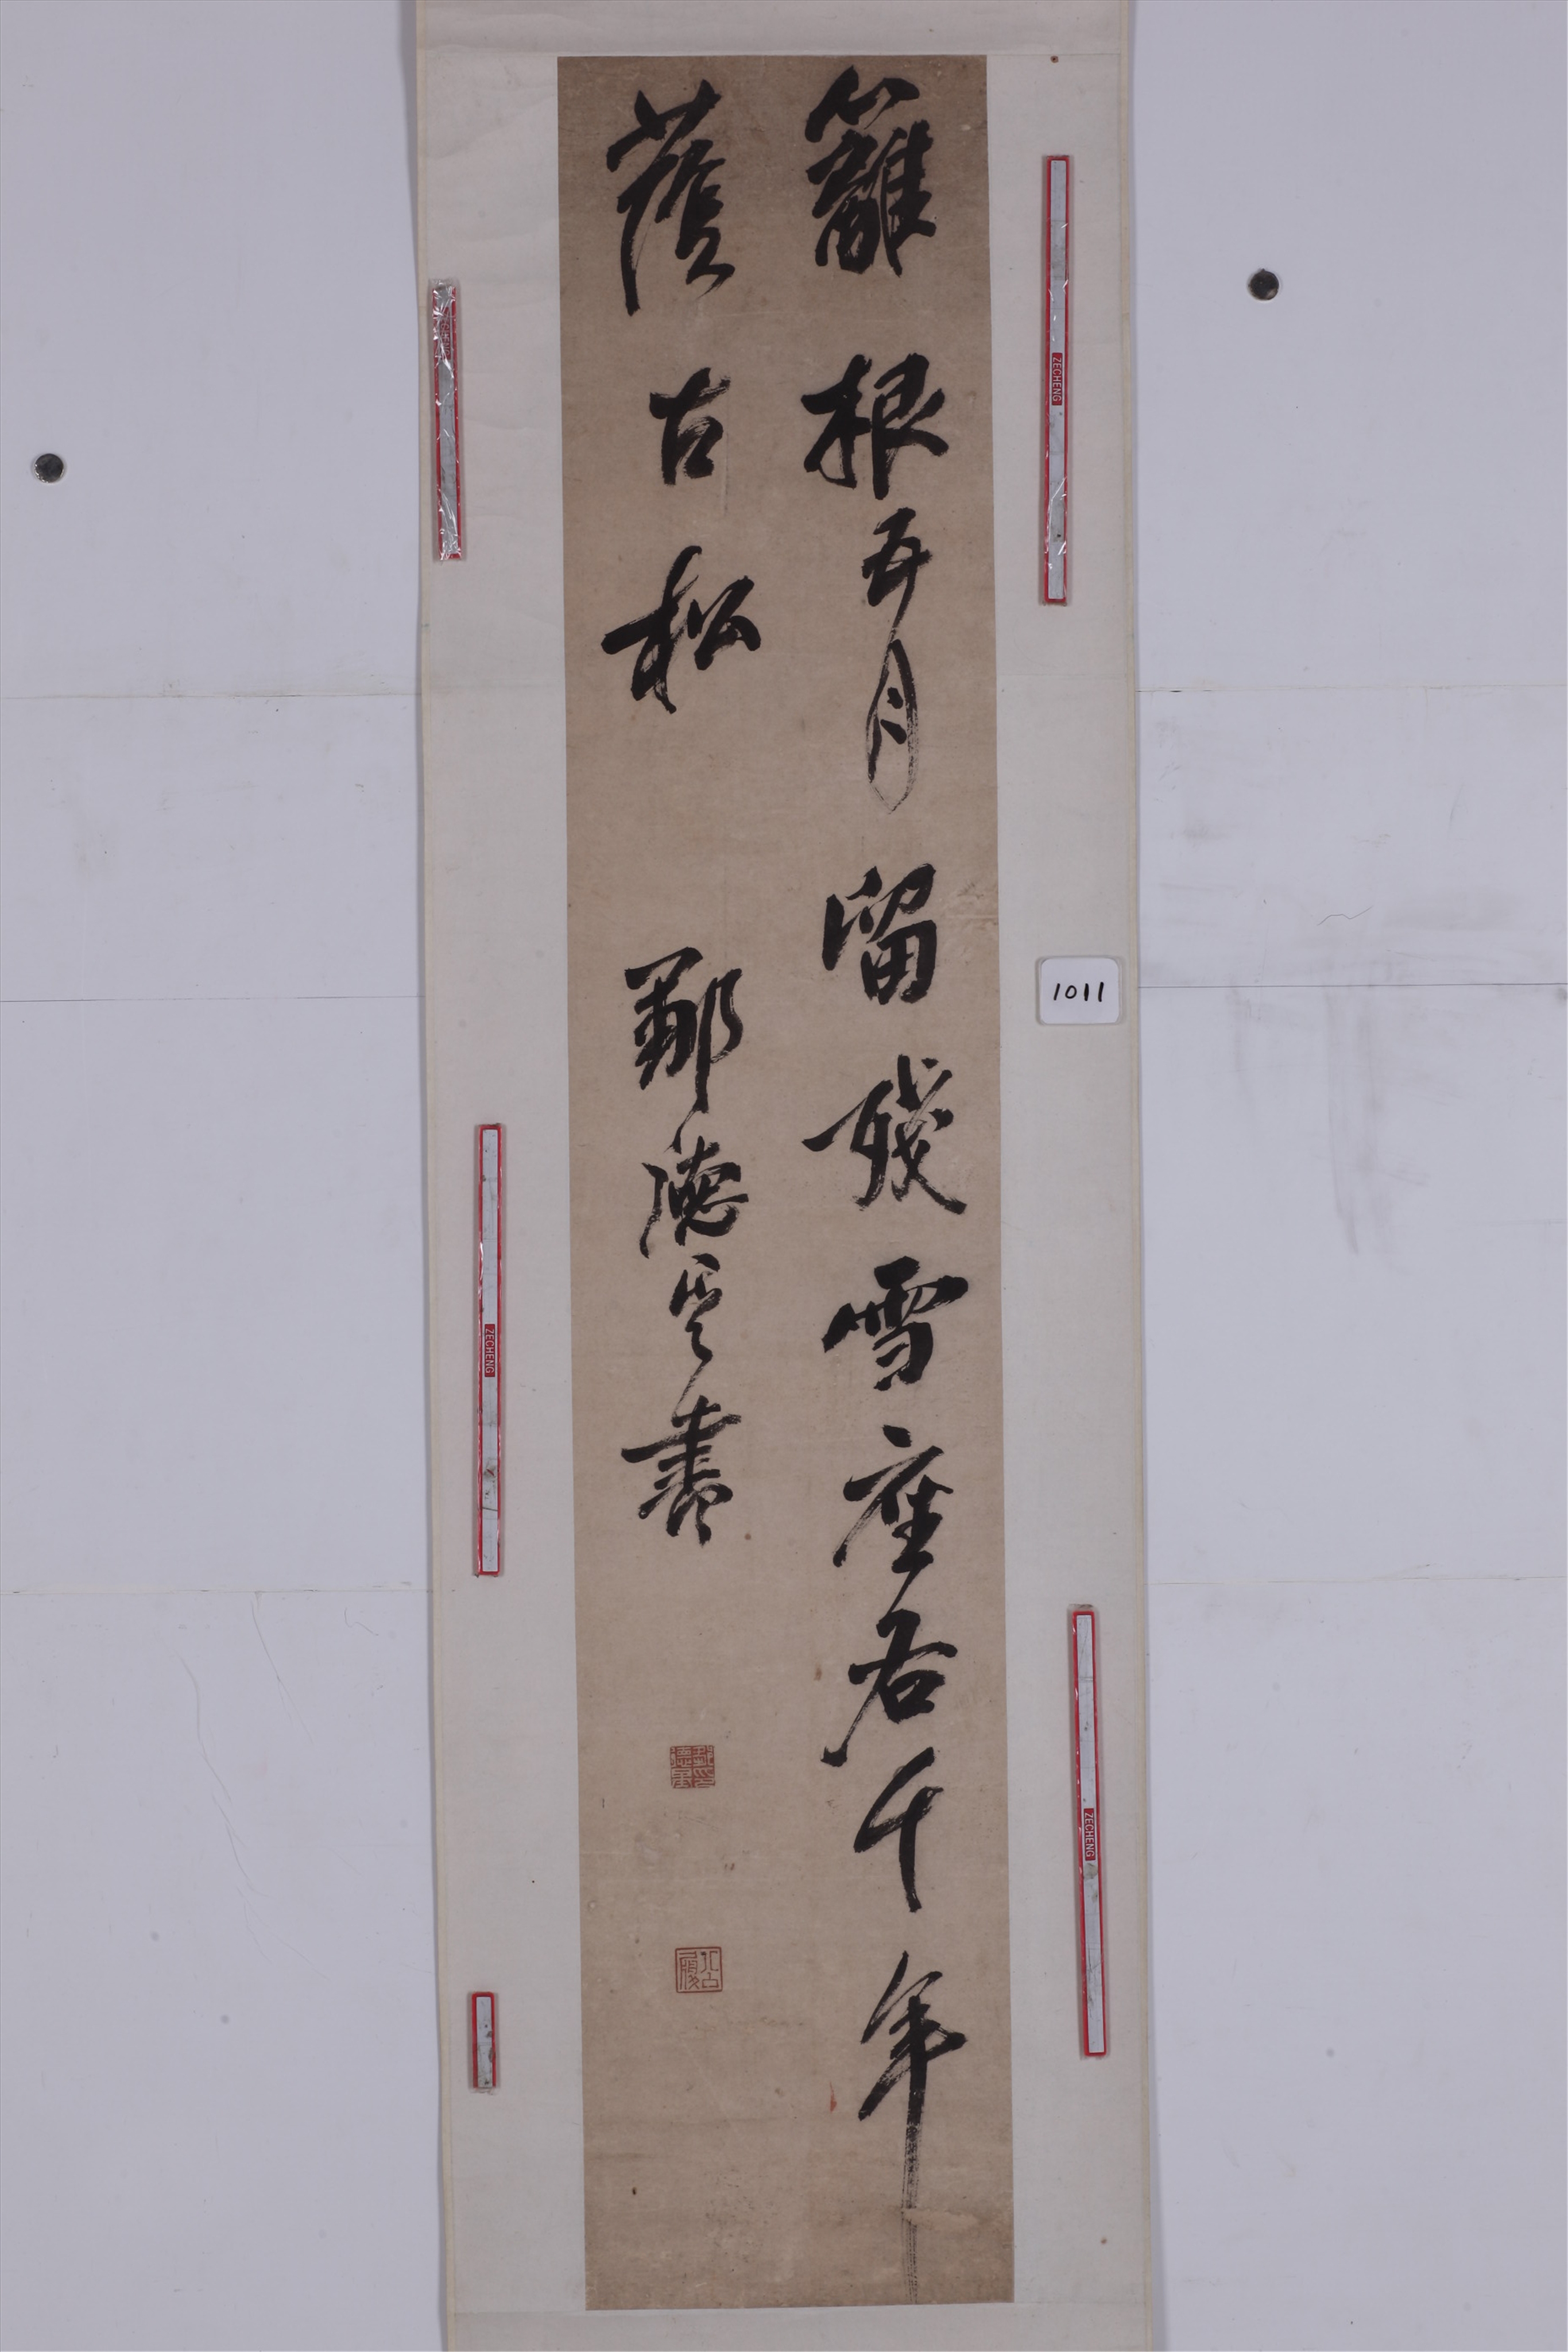 籬根五月留殘雪座右千年
蔭古松
鄒德基書
公履
1011
ZECHENG
ZECHENG
ZECHENG